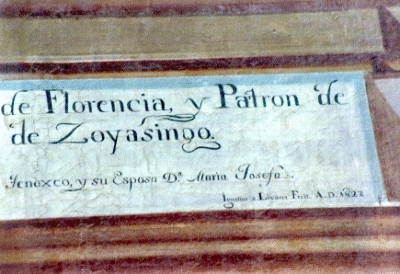 de Florencia, y Patron de
de Zoyasingo.
Tenoxco, y su Esposa Dª. Maria Josefa
a Loyana Fecit. A.D. 1822